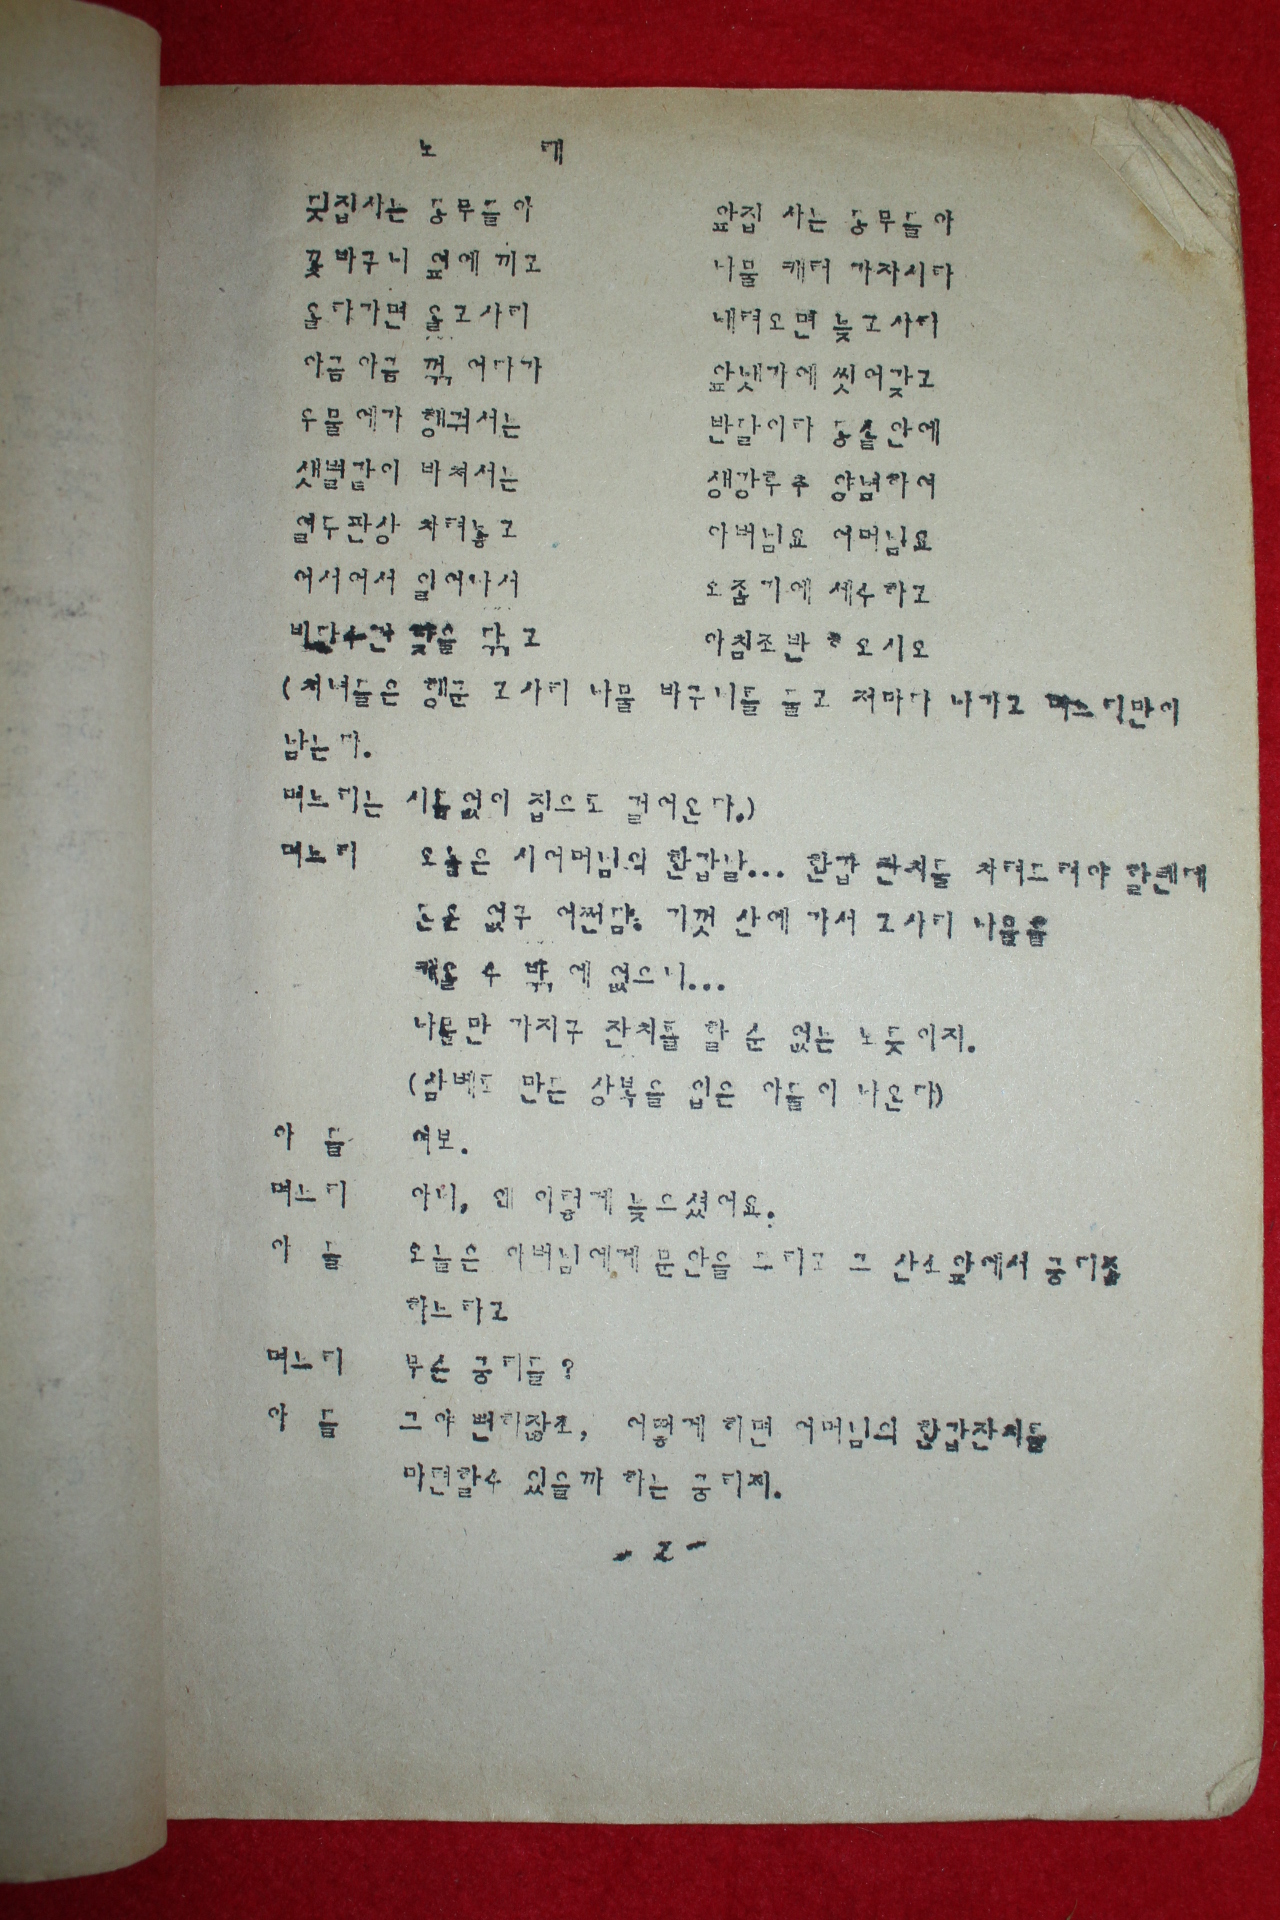 노 래
뒷집사는 동무들아 앞집 사는 동무들아
꽃바구니 옆에 끼고 나물 캐러 가자시라
올라가면 올고사리 내려오면 늦고사리
아금아금 꺾어다가 앞냇가에 씻어갖고
우물에가 행궈서는 반달이라 동솥안에
샛별같이 바쳐서는 생강후추 양념하여
열두판상 차려놓고 아버님요 어머님요
어서어서 일어나서 오줌기에 세수하고
비단수건 낯을 닦고 아침조반 오시오
(처녀들은 행군 고사리 나물 바구니들 들고 저마다 나가고 며느리만이
남는다.
며느리는 시름없이 집으로 걸어온다.)
며느리 오늘은 시어머님의 환갑날... 환갑 잔치를 차려드려야 할텐데
돈은 없구 어쩐담. 기껏 산에 가서 고사리 나물을
캐올 수 밖에 없으니...
나물만 가지구 잔치를 할 순 없는 노릇이지.
(삼베로 만든 상복을 입은 아들이 나온다)
아 들 여보.
며느리 아니, 왜 이렇게 늦으셨어요.
아 들 오늘은 아버님에게 문안을 드리고 그 산소앞에서 궁리좀
하느라고
며느리 무슨 궁리를?
아 들 그야 뻔하잖소, 어떻게 하면 어머님의 환갑잔치를
마련할수 있을까 하는 궁리지.
- 2 -